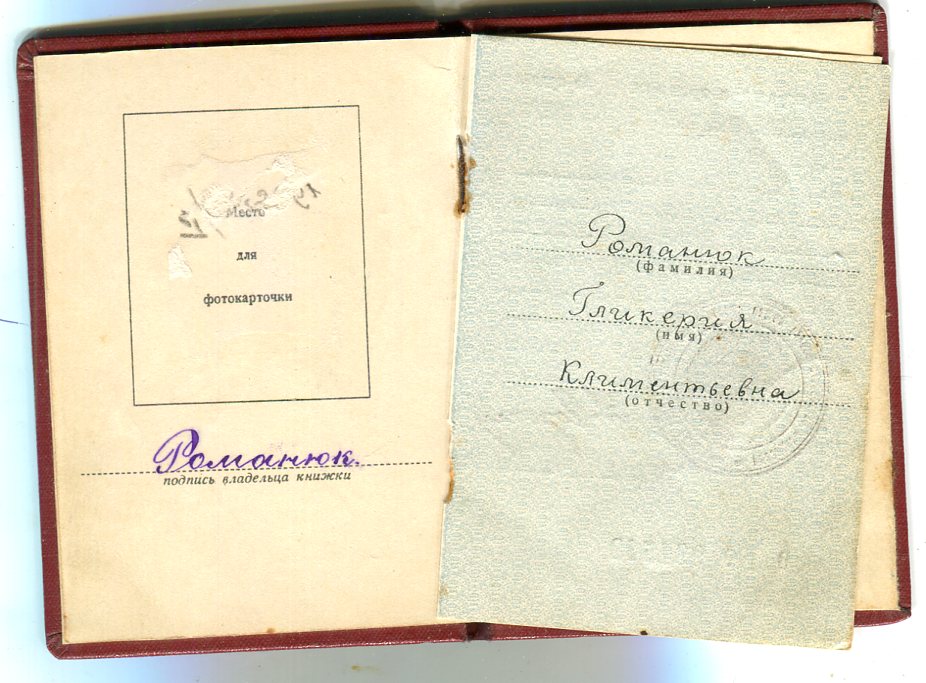 Место
для
фотокарточки
Романюк.
подпись владельца книжки
Романюк
(фамилия)
Гликерия
(имя)
Климентьевна
(отчество)